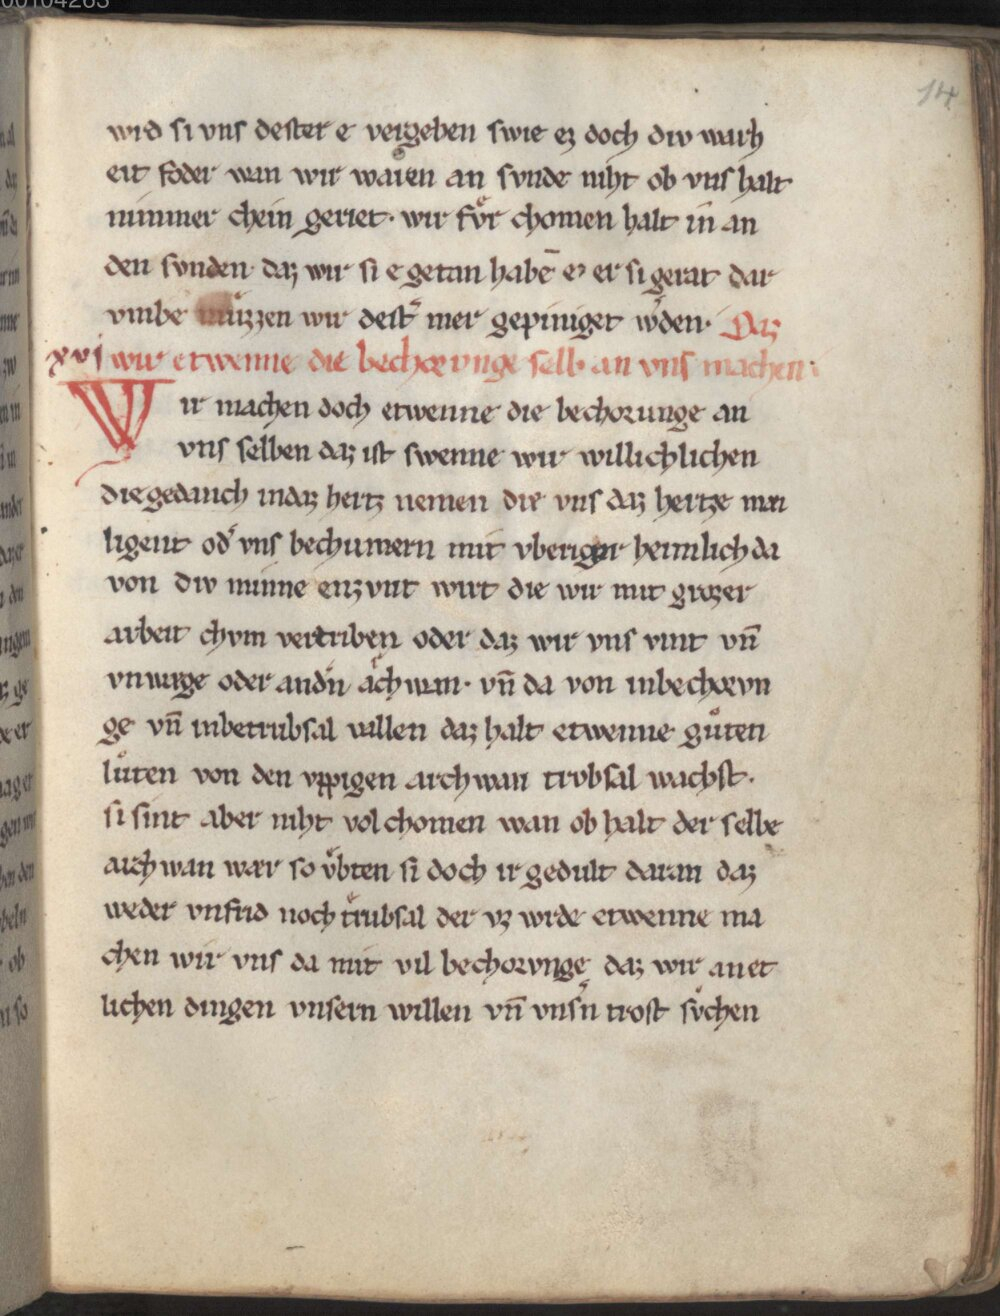 00104263
14
wird si vns dester e vergeben swie ez doch div warh
eit foder wan wir waͤren an sunde niht ob vns halt
nimmer chein geriet· wir fvͤr chomen halt in an
den svnden· daz wir si e getan habē eͣ er si gerat dar
vmbe muͤzzen wir dest͛ mer gepiniget w͛den· Daz
xvj wir etwenne die bechorvnge selb· an vns machen·
Wir machen doch etwenne die bechorunge an
vns selben daz ist swenne wir willichlichen
die gedanch indaz hertz nemen die vns daz hertze mai
ligent od͛ vns bechumern mit vberiger heimlich da
von div minne enzvnt wirt die wir mit grozer
arbeit chvm vertriben oder daz wir vns vint vn̄
vnwage oder and͛n aͤrchwan· vn̄ da von inbechorvn
ge vn̄ inbetrubsal vallen daz halt etwenne guͦten
luͤten von den vppigen archwan trvbsal wachst·
si sint aber niht volchomen wan ob halt der selbe
archwan war so vͤbten si doch ir gedult daran daz
weder vnfrid noch truͤbsal der vz wrde etwenne ma
chen wir vns da mit vil bechorvnge daz wir an et
lichen dingen vnsern willen vn̄ vns͛n trost svͦchen